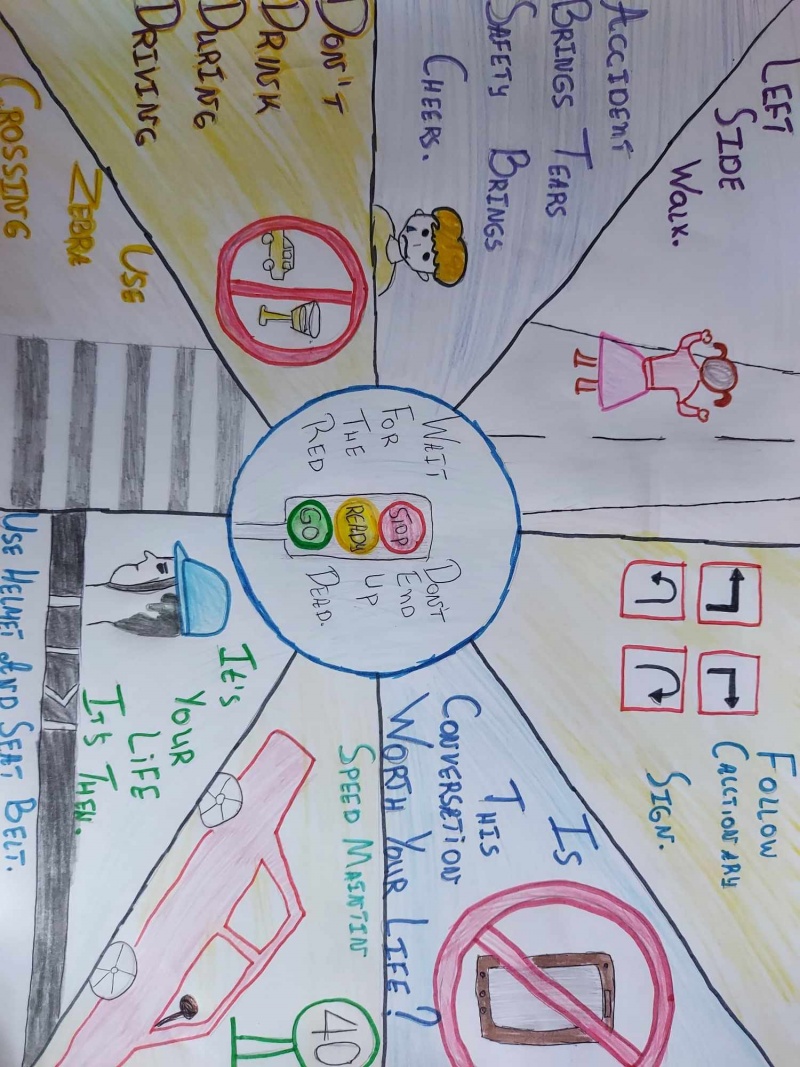 LEFT
SIDE
WALK.
FOLLOW
CAUCTIONARY
SIGN.
ACCIDENT
BRINGS TEARS
SAFETY BRINGS
CHEERS.
IS
THIS
CONVERSETION
WORTH YOUR LIFE?
WAIT
FOR
THE
RED
STOP
READY
GO
DON'T
END
UP
DEAD.
DON'T
DRINK
DURING
DRIVING
SPEED MAINTIN
40
USE
ZEBRA
CROSSING
IT'S
YOUR
LIFE
IT'S THEN.
USE HELMET AND SEAT BELT.